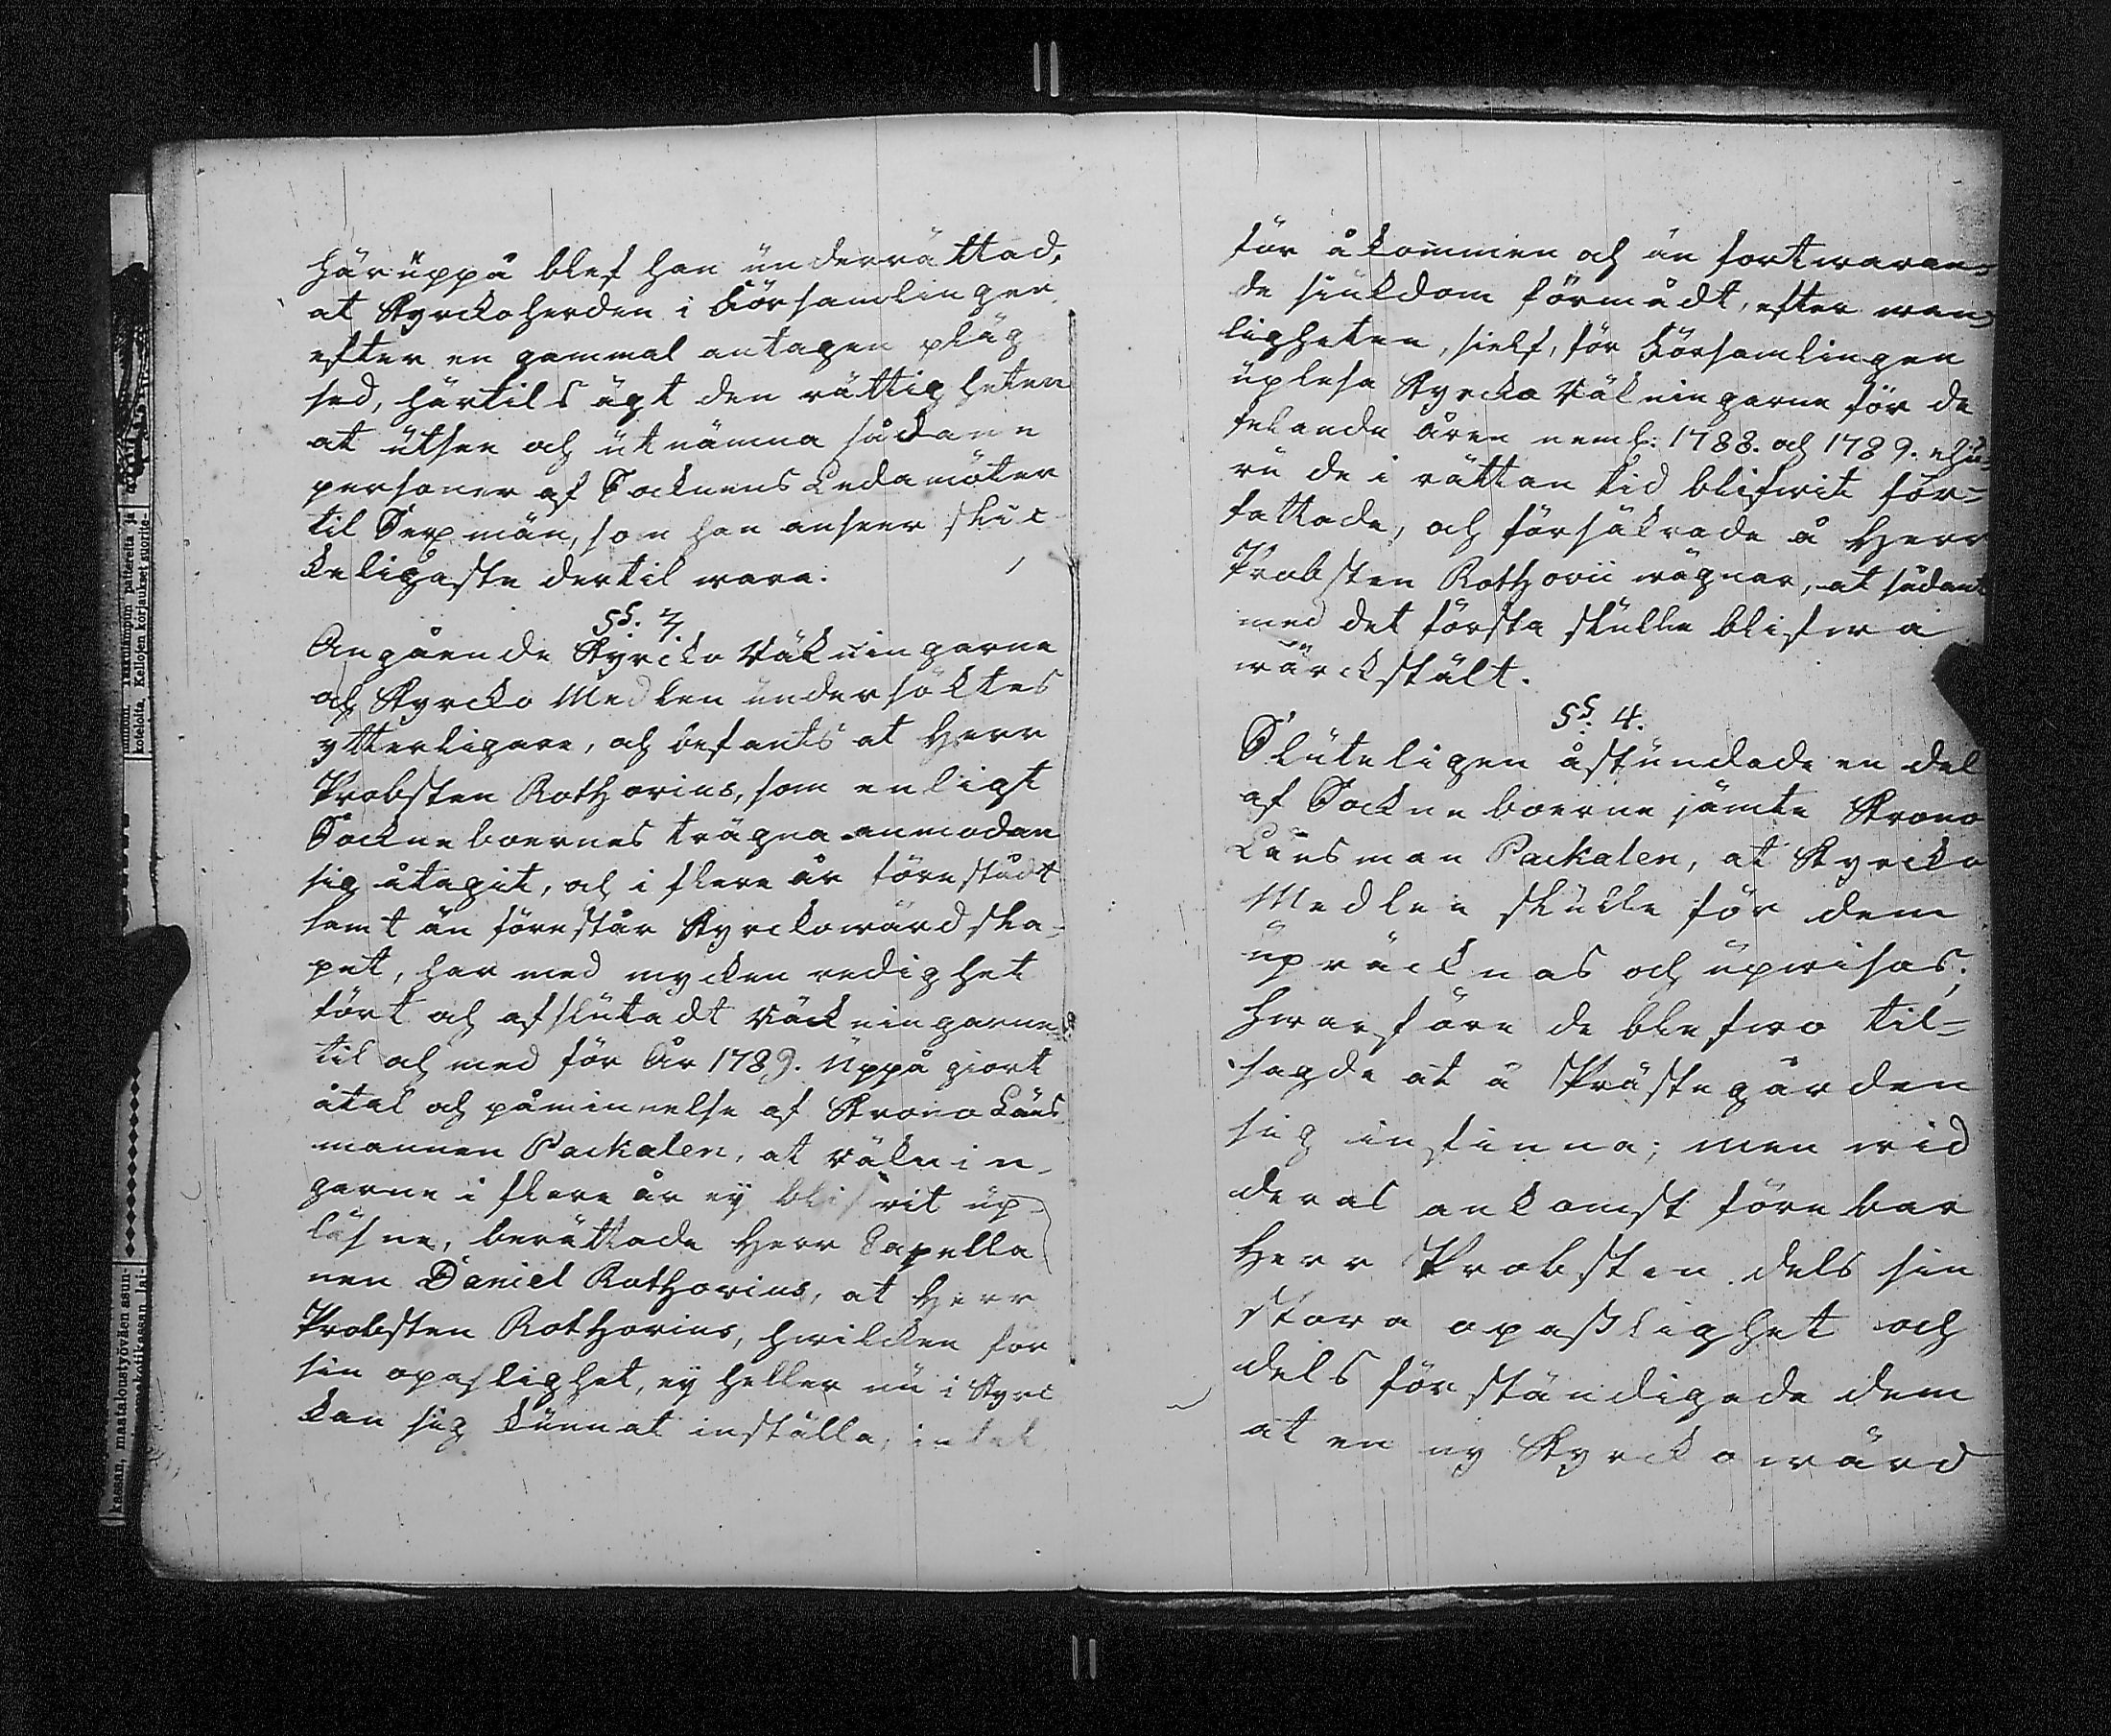 häruppå blef han underrättad,
at Kyrckoherden i Församlingen
efter en gammal antagen pläg-
sed, härtils ägt den rättigheten
at utsee och utnämna sådane
personer af Socknens Ledamöter
til Sexmän, som han anseer skic-
keligaste dertil wara.
§§. 3.
Angående Kyrcko Räkningarne
och Kyrcko Medlen undersöktes
ytterligare, och befants at Herr
Probsten Rothovius, som enligt
Sockneboernes trägna anmodan
sig åtagit, och i flere år förestådt
samt än förestår Kyrckowärdska-
pet, har med mycken redighet
fört och afslutadt Räckningarne
til och med för År 1789. Uppå giort
åtal och påminnelse af Krono Läns
mannen Packalen, at Räknin-
garne i flere år ej blifvit up-
läsne, berättade Herr Capella
nen Daniel Rothovius, at Herr
Probsten Rothovius, hwilcken för
sin opaslighet, ej heller nu i Kyrc
kan sig kunnat inställa, intet
för åkommen och än fortwaran-
de siukdom förmådt, efter wan-
ligheten, sielf, för Församlingen
uplesa Kyrcko Räkningarne för de
felande åren neml: 1788. och 1789. ehu-
ru de i rättan tid blifwit för-
fattade, och försäkrade å Herr
Probsten Rothovii wägnar, at sådant
med det första skulle blifwa
wärckstält.
§§. 4.
Sluteligen åstundade en del
af Sockneboerne jämte Krono
Länsman Packalen, at Kyrcko
Medlen skulle för dem
upräcknas och upwisas;
hwarföre de blefwo til-
sagde at å Prästegården
sig infinna; men wid
deras ankomst förebar
Herr Probsten dels sin
stora opaßlighet och
dels förständigade dem
at en ny Kyrckowärd
kassan, maataloustyöväen asun-
koteloita, Kellojen korjaukset suorite-